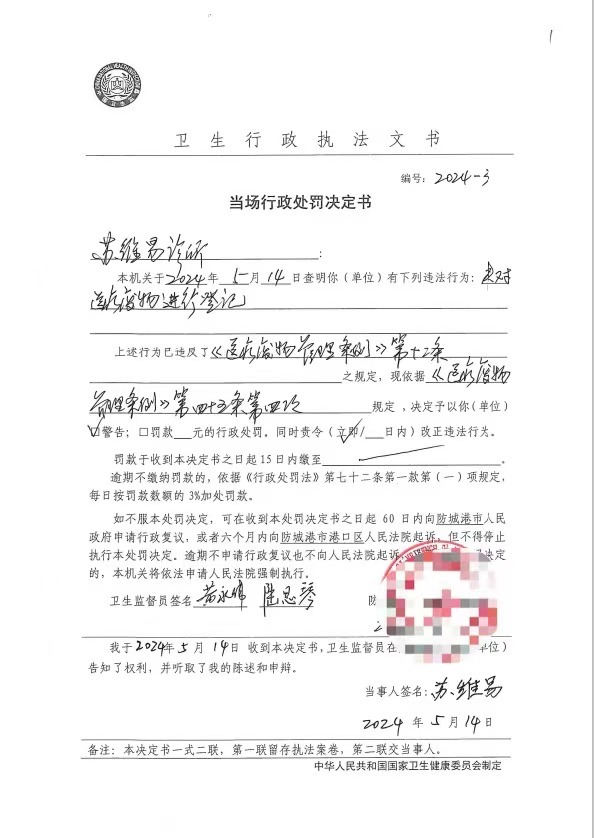 1
卫生行政执法文书
编号：2024-3
当场行政处罚决定书
苏维易诊所：
本机关于2024年5月14日查明你（单位）有下列违法行为：未对
医疗废物进行登记
上述行为已违反了《医疗废物管理条例》第十二条
之规定，现依据《医疗废物
管理条例》第四十五条第四项规定，决定予以你（单位）
☑警告；☐罚款___元的行政处罚。同时责令（立即/___日内）改正违法行为。
罚款于收到本决定书之日起15日内缴至 。
逾期不缴纳罚款的，依据《行政处罚法》第七十二条第一款第（一）项规定，
每日按罚款数额的3%加处罚款。
如不服本处罚决定，可在收到本处罚决定书之日起60日内向防城港市人民
政府申请行政复议，或者六个月内向防城港市港口区人民法院起诉，但不得停止
执行本处罚决定。逾期不申请行政复议也不向人民法院起诉 决定
的，本机关将依法申请人民法院强制执行。
卫生监督员签名 黄永 陆思琴 防
我于2024年5月14日收到本决定书，卫生监督员在 单位）
告知了权利，并听取了我的陈述和申辩。
当事人签名：苏维易
2024年5月14日
备注：本决定书一式二联，第一联留存执法案卷，第二联交当事人。
中华人民共和国国家卫生健康委员会制定